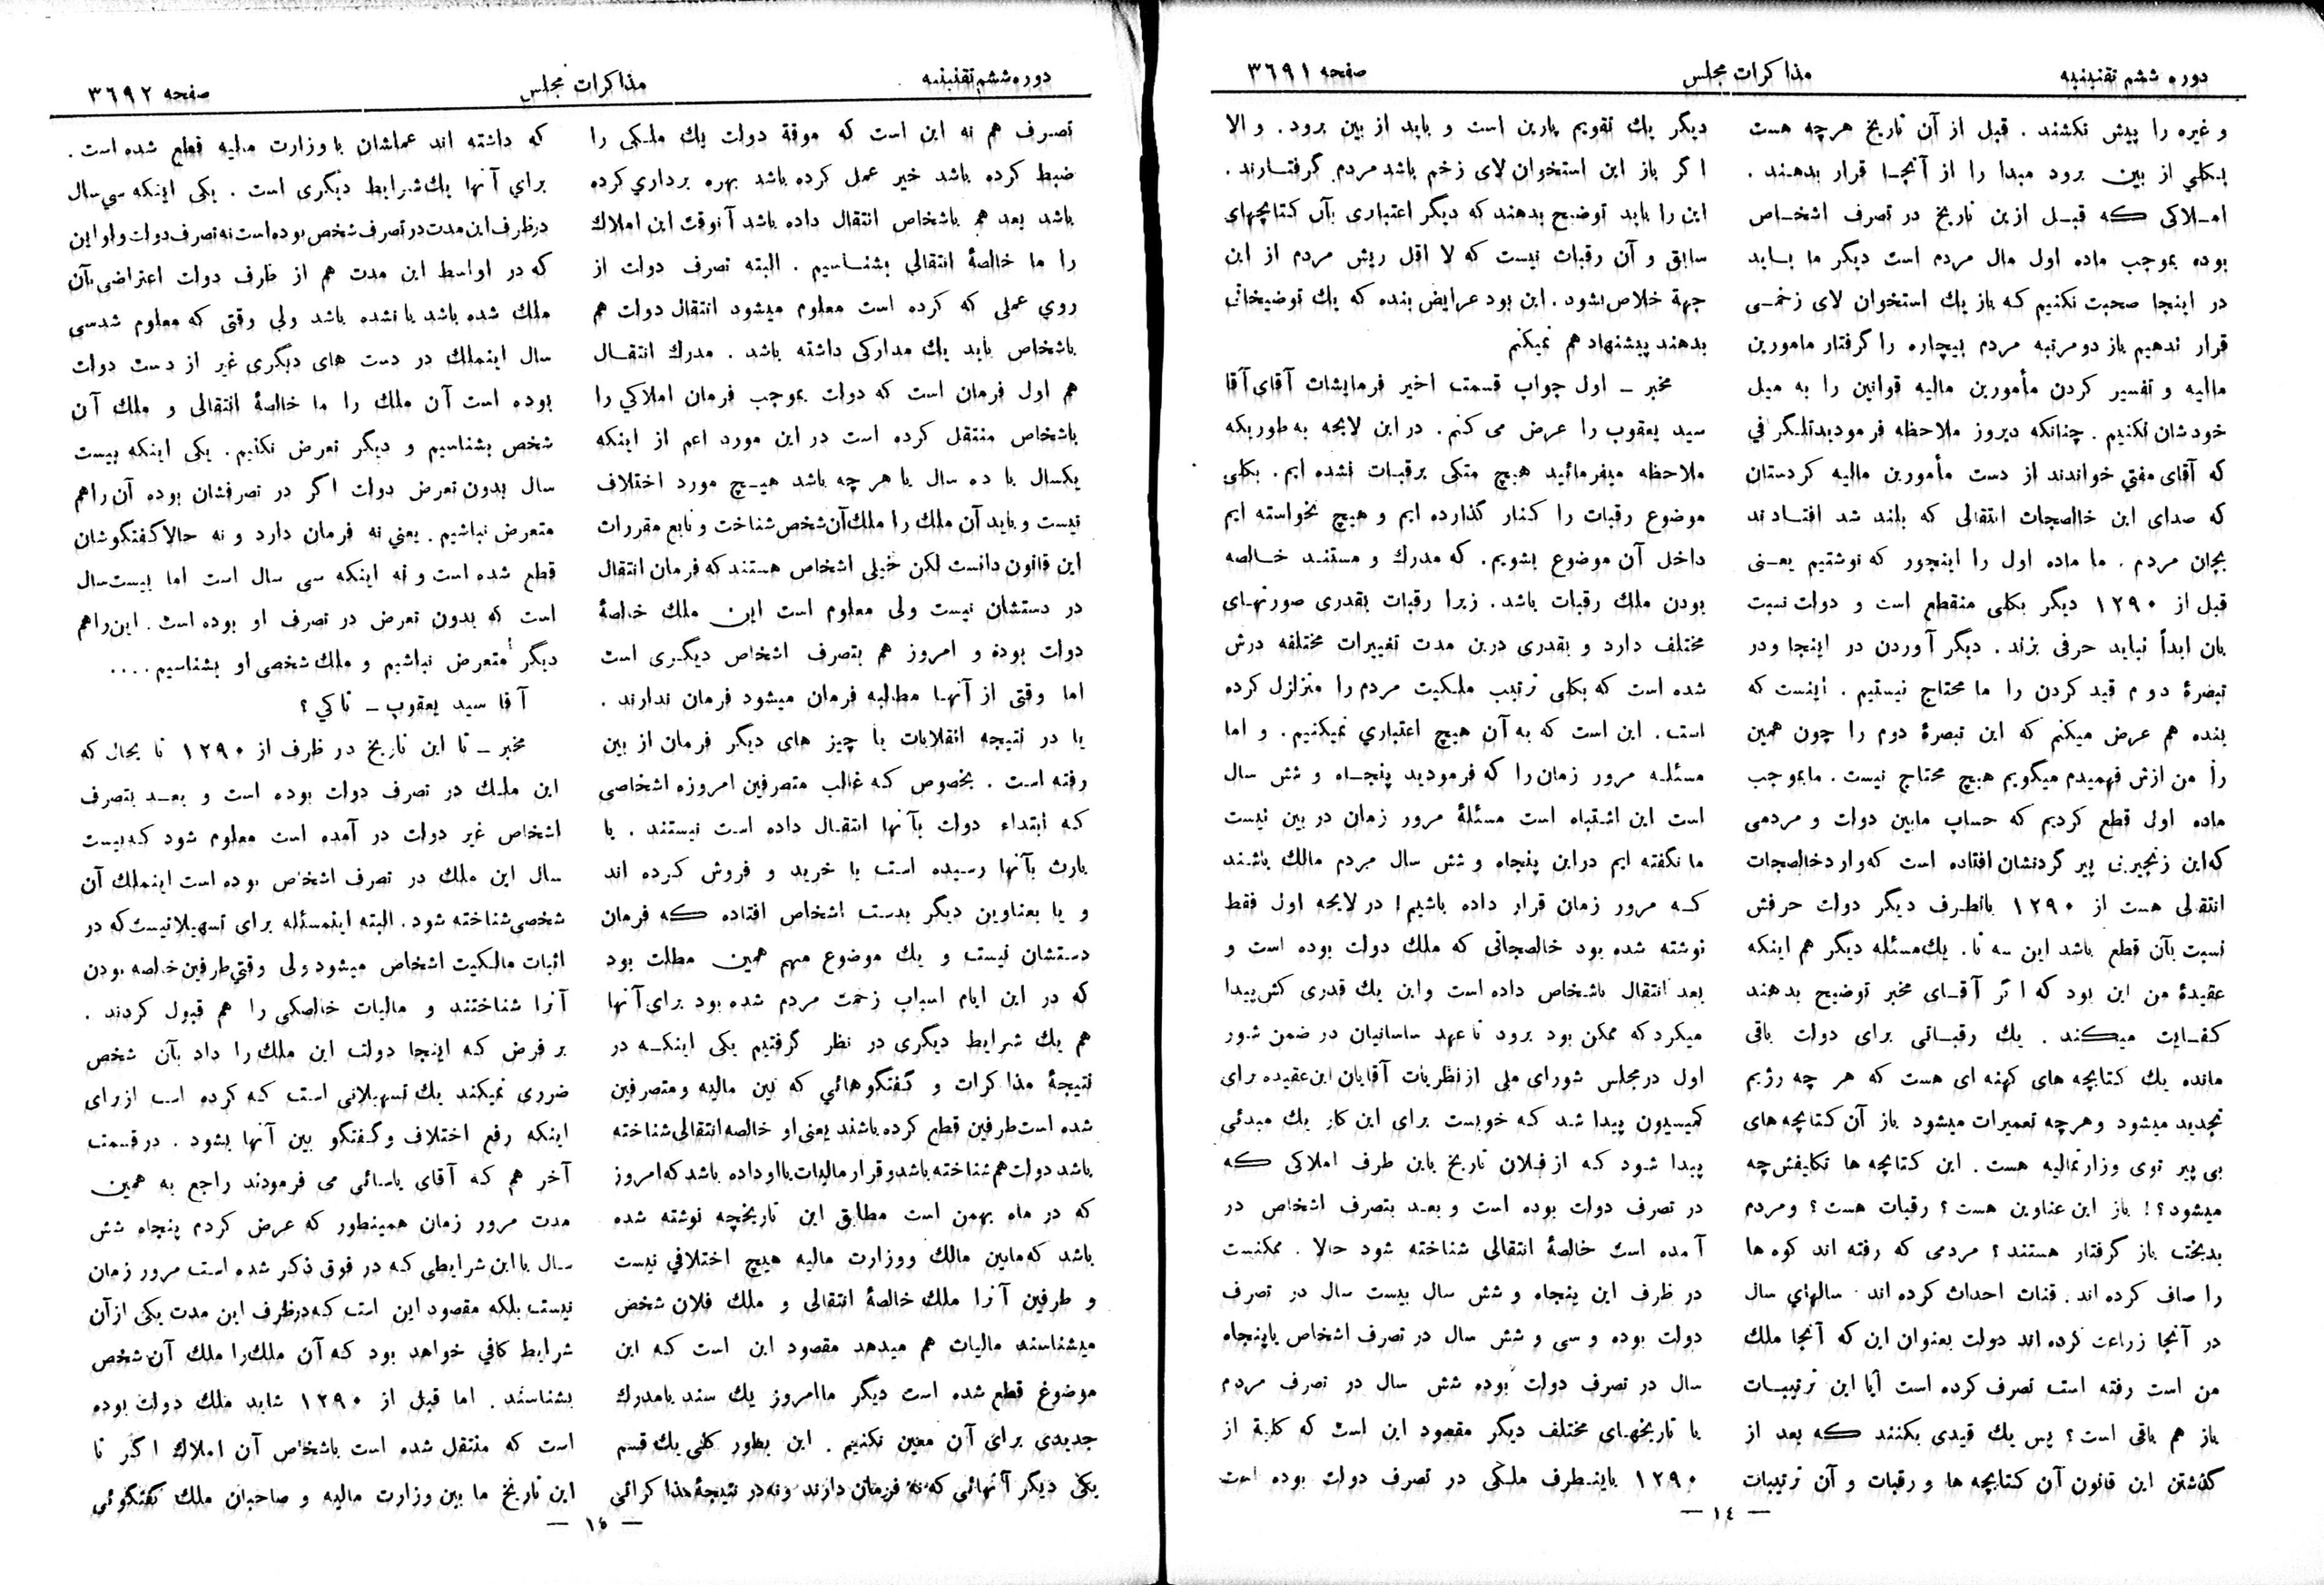 دوره ششم تقنینیه
مذاکرات مجلس
صفحه ۳۶۹۱
و غیره را پیش نکشند . قبل از آن تاریخ هرچه هست
بکلی از بین برود مبدا را از آنجا قرار بدهند .
املاکی که قبل ازین تاریخ در تصرف اشخاص
بوده بموجب ماده اول مال مردم است دیگر ما باید
در اینجا صحبت نکنیم که باز یك استخوان لای زخمی
قرار ندهیم باز دو مرتبه مردم بیچاره را گرفتار مامورین
مالیه و تفسیر کردن مأمورین مالیه قوانین را به میل
خودشان نکنیم . چنانکه دیروز ملاحظه فرمودید تلگرافی
که آقای مفتی خواندند از دست مأمورین مالیه کردستان
که صدای این خالصجات انتقالی که بلند شد افتادند
بجان مردم . ما ماده اول را اینجور که نوشتیم یعنی
قبل از ۱۲۹۰ دیگر بکلی منقطع است و دولت نسبت
بان ابداً نباید حرفی بزند . دیگر آوردن در اینجا ودر
تبصرهٔ دوم قید کردن را ما محتاج نیستیم . اینست که
بنده هم عرض میکنم که این تبصرهٔ دوم را چون همین
را من ازش فهمیدم میگویم هیچ محتاج نیست . مابموجب
ماده اول قطع کردیم که حساب مابین دولت و مردمی
که این زنجیر بی پیر گردنشان افتاده است که وارد خالصجات
انتقالی هست از ۱۲۹۰ باانطرف دیگر دولت حرفش
نسبت بآن قطع باشد این سه تا . یك مسئله دیگر هم اینکه
عقیدهٔ من این بود که اگر آقای مخبر توضیح بدهند
کفایت میکند . یك رقباتی برای دولت باقی
مانده یك کتابچه های کهنه ای هست که هر چه رژیم
تجدید میشود و هرچه تعمیرات میشود باز آن کتابچه های
بی پیر توی وزارتمالیه هست . این کتابچه ها تکلیفش چه
میشود؟! باز این عناوین هست؟ رقبات هست؟ ومردم
بدبخت باز گرفتار هستند؟ مردمی که رفته اند کوه ها
را صاف کرده اند . قنات احداث کرده اند سالهای سال
در آنجا زراعت کرده اند دولت بعنوان این که آنجا ملك
من است رفته است تصرف کرده است آیا این ترتیبات
باز هم باقی است؟ پس یك قیدی بکنند که بعد از
گذشتن این قانون آن کتابچه ها و رقبات و آن ترتیبات
دیگر یك تقویم پارین است و باید از بین برود . و الا
اگر باز این استخوان لای زخم باشد مردم گرفتارند .
این را باید توضیح بدهند که دیگر اعتباری بآن کتابچهای
سابق و آن رقبات نیست که لا اقل ریش مردم از این
جهة خلاص بشود . این بود عرایض بنده که یك توضیحاتی
بدهند پیشنهاد هم نمیکنم
مخبر ـ اول جواب قسمت اخیر فرمایشات آقای آقا
سید یعقوب را عرض می کنم . در این لایحه به طوریکه
ملاحظه میفرمائید هیچ متکی برقبات نشده ایم . بکلی
موضوع رقبات را کنار گذارده ایم و هیچ نخواسته ایم
داخل آن موضوع بشویم . که مدرك و مستند خالصه
بودن ملك رقبات باشد . زیرا رقبات بقدری صورتهای
مختلف دارد و بقدری درین مدت تغییرات مختلفه درش
شده است که بکلی ترتیب ملکیت مردم را متزلزل کرده
است . این است که به آن هیچ اعتباری نمیکنیم . و اما
مسئله مرور زمان را که فرمودید پنجاه و شش سال
است این اشتباه است مسئلهٔ مرور زمان در بین نیست
ما نگفته ایم در این پنجاه و شش سال مردم مالك باشند
که مرور زمان قرار داده باشیم! در لایحه اول فقط
نوشته شده بود خالصجاتی که ملك دولت بوده است و
بعد انتقال باشخاص داده است واین یك قدری کش پیدا
میکرد که ممکن بود برود تا عهد ساسانیان در ضمن شور
اول در مجلس شورای ملی از نظریات آقایان این عقیده برای
کمیسیون پیدا شد که خوبست برای این کار یك مبدئی
پیدا شود که از فلان تاریخ باین طرف املاکی که
در تصرف دولت بوده است و بعد بتصرف اشخاص در
آمده است خالصهٔ انتقالی شناخته شود حالا . ممکنست
در ظرف این پنجاه و شش سال بیست سال در تصرف
دولت بوده و سی و شش سال در تصرف اشخاص یا پنجاه
سال در تصرف دولت بوده شش سال در تصرف مردم
یا تاریخهای مختلف دیگر مقصود این است که کلیة از
۱۲۹۰ باینطرف ملکی در تصرف دولت بوده است
— ١٤ —
دوره ششم تقنینیه
مذاکرات مجلس
صفحه ۳۶۹۲
تصرف هم نه این است که موقة دولت یك ملکی را
ضبط کرده باشد خیر عمل کرده باشد بهره برداری کرده
باشد بعد هم باشخاص انتقال داده باشد آنوقت این املاك
را ما خالصهٔ انتقالی بشناسیم . البته تصرف دولت از
روی عملی که کرده است معلوم میشود انتقال دولت هم
باشخاص باید یك مدارکی داشته باشد . مدرك انتقال
هم اول فرمان است که دولت بموجب فرمان املاکی را
باشخاص منتقل کرده است در این مورد اعم از اینکه
یکسال یا ده سال یا هر چه باشد هیچ مورد اختلاف
نیست و باید آن ملك را ملك آن شخص شناخت و تابع مقررات
این قانون دانست لکن خیلی اشخاص هستند که فرمان انتقال
در دستشان نیست ولی معلوم است این ملك خالصهٔ
دولت بوده و امروز هم بتصرف اشخاص دیگری است
اما وقتی از آنها مطالبه فرمان میشود فرمان ندارند .
یا در نتیجه انقلابات یا چیز های دیگر فرمان از بین
رفته است . بخصوص که غالب متصرفین امروزه اشخاصی
که ابتداء دولت بآنها انتقال داده است نیستند . یا
بارث بآنها رسیده است یا خرید و فروش کرده اند
و یا بعناوین دیگر بدست اشخاص افتاده که فرمان
دستشان نیست و یك موضوع مهم همین مطلت بود
که در این ایام اسباب زحمت مردم شده بود برای آنها
هم یك شرایط دیگری در نظر گرفتیم یکی اینکه در
نتیجهٔ مذاکرات و گفتگوهائی که بین مالیه ومتصرفین
شده است طرفین قطع کرده باشند یعنی او خالصه انتقالی شناخته
باشد دولت هم شناخته باشد و قرار مالیات بااو داده باشد که امروز
که در ماه بهمن است مطابق این تاریخچه نوشته شده
باشد که مابین مالك ووزارت مالیه هیچ اختلافی نیست
و طرفین آنرا ملك خالصهٔ انتقالی و ملك فلان شخص
میشناسند مالیات هم میدهد مقصود این است که این
موضوع قطع شده است دیگر ماامروز یك سند یامدرك
جدیدی برای آن معین نکنیم . این بطور کلی یك قسم
یکی دیگر آنهائی که نه فرمان دارند ونه در نتیجهٔ مذاکراتی
که داشته اند عملشان با وزارت مالیه قطع شده است .
برای آنها یك شرایط دیگری است . یکی اینکه سی سال
در ظرف این مدت در تصرف شخص بوده است نه تصرف دولت ولو این
که در اواسط این مدت هم از طرف دولت اعتراضی بآن
ملك شده باشد یا نشده باشد ولی وقتی که معلوم شد سی
سال اینملك در دست های دیگری غیر از دست دولت
بوده است آن ملك را ما خالصهٔ انتقالی و ملك آن
شخص بشناسیم و دیگر تعرض نکنیم . یکی اینکه بیست
سال بدون تعرض دولت اگر در تصرفشان بوده آن راهم
متعرض نباشیم . یعنی نه فرمان دارد و نه حالا گفتگوشان
قطع شده است و نه اینکه سی سال است اما بیست سال
است که بدون تعرض در تصرف او بوده است . این راهم
دیگر متعرض نباشیم و ملك شخصی او بشناسیم ....
آقا سید یعقوب ـ تا کی؟
مخبر ـ تا این تاریخ در ظرف از ۱۲۹۰ تا بحال که
این ملك در تصرف دولت بوده است و بعد بتصرف
اشخاص غیر دولت در آمده است معلوم شود که بیست
سال این ملك در تصرف اشخاص بوده است اینملك آن
شخصی شناخته شود . البته اینمسئله برای تسهیلاتیست که در
اثبات مالکیت اشخاص میشود ولی وقتی طرفین خالصه بودن
آنرا شناختند و مالیات خالصگی را هم قبول کردند .
بر فرض که اینجا دولت این ملك را داد بآن شخص
ضرری نمیکند یك تسهیلاتی است که کرده است ازبرای
اینکه رفع اختلاف وگفتگو بین آنها بشود . در قسمت
آخر هم که آقای یاسائی می فرمودند راجع به همین
مدت مرور زمان همینطور که عرض کردم پنجاه شش
سال با این شرایطی که در فوق ذکر شده است مرور زمان
نیست بلکه مقصود این است که در ظرف این مدت یکی از آن
شرایط کافی خواهد بود که آن ملك را ملك آن شخص
بشناسند . اما قبل از ۱۲۹۰ شاید ملك دولت بوده
است که منتقل شده است باشخاص آن املاك اگر تا
این تاریخ ما بین وزارت مالیه و صاحبان ملك گفتگوئی
— ١٥ —